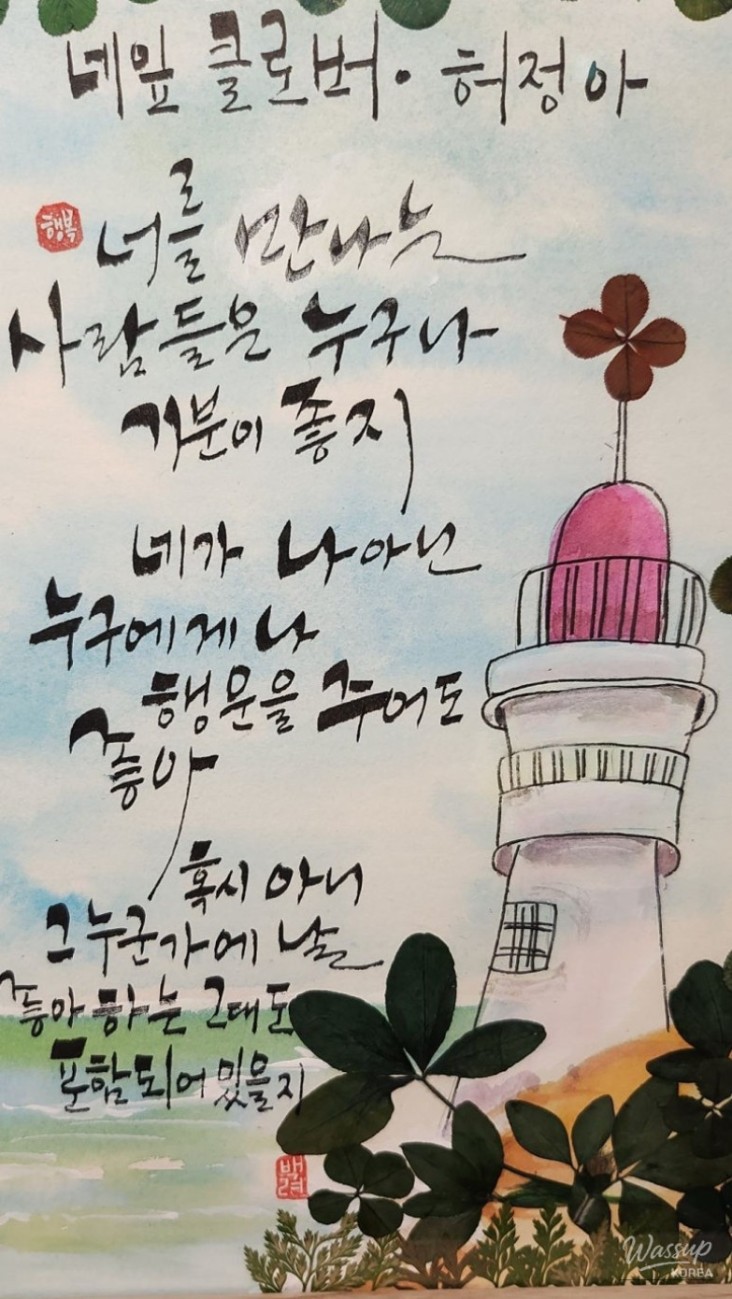 네잎 클로버 · 허정아
행복
너를 만나는
사람들은 누구나
기분이 좋지
네가 나 아닌
누구에게나
행운을 주어도
좋아
혹시 아니
그 누군가에 날
좋아 하는 그대도
포함되어 있을지
백련
Wassup
KOREA